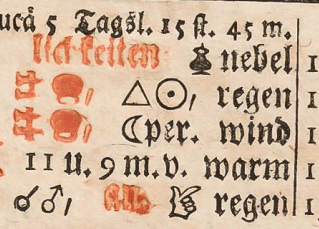 ucä 5 Tagsl. 15 st. 45 m.
lichkeiten nebel 1
△ ☉, regen 1
☾ per. wind 1
11 u. 9 m. v. warm 1
☌ ♂, regen 1